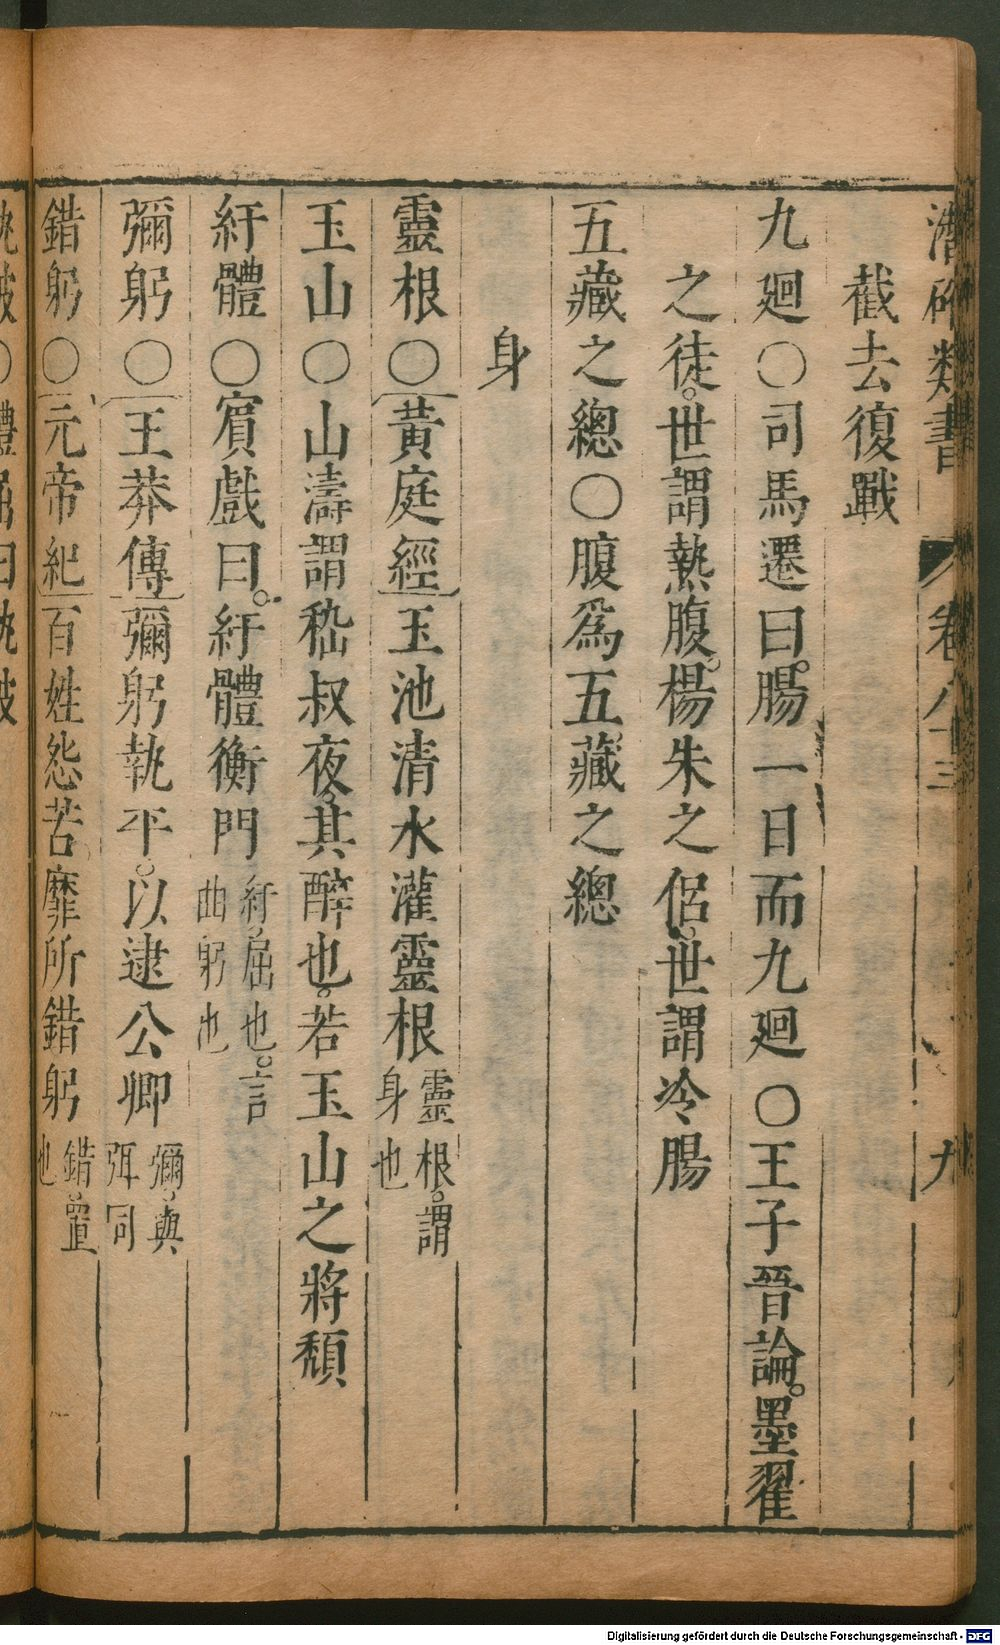 潛確類書 卷八十三 九
截去復戰
九廻〇司馬遷曰腸一日而九廻〇王子晉論墨翟
之徒世謂熱腹楊朱之侶世謂冷腸
五藏之總〇腹爲五藏之總
身
靈根〇黃庭經玉池清水灌靈根靈根謂身也
玉山〇山濤謂嵇叔夜其醉也若玉山之將頹
紆體〇賓戲曰紆體衡門紆屈也言曲躬也
彌躬〇王莽傳彌躬執平以逮公卿彌與弭同
錯躬〇元帝紀百姓怨苦靡所錯躬錯置也
Digitalisierung gefördert durch die Deutsche Forschungsgemeinschaft - DFG